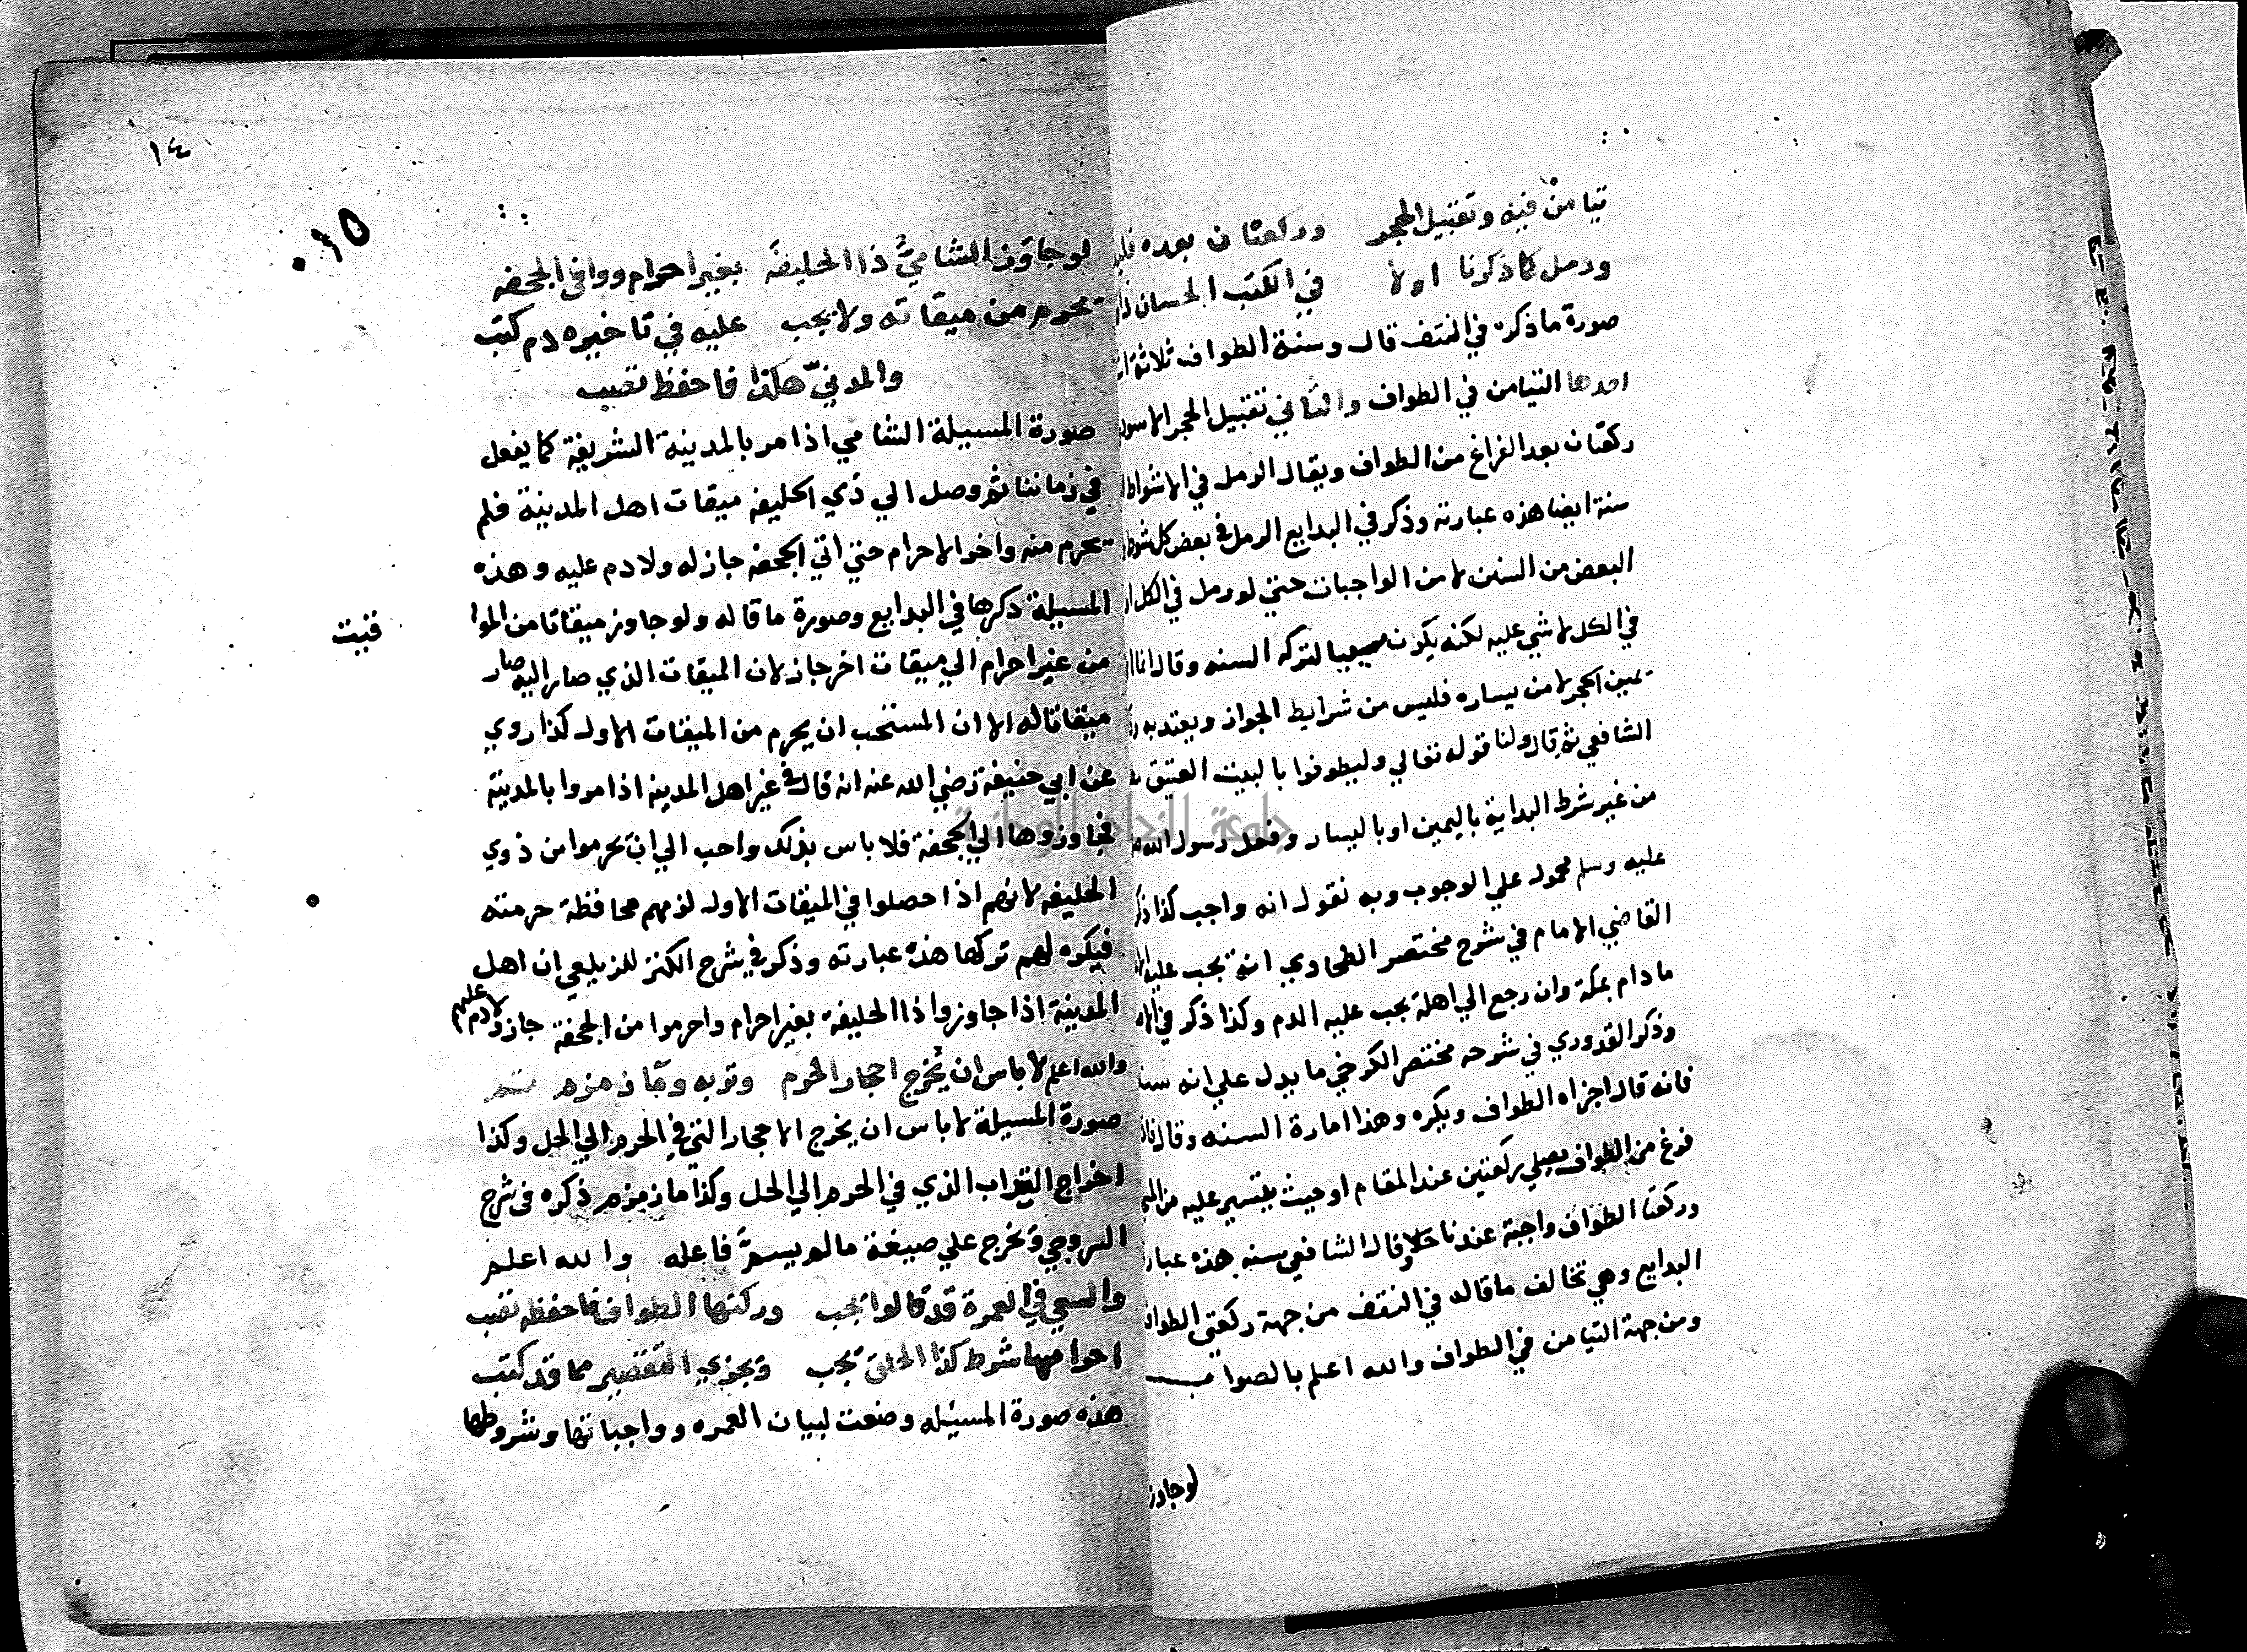 تيامن فيه وتقبيل الحجر وركعتان بعده
ورمل كما ذكرنا اولا في الكتب الحسان
صورة ما ذكره في النتف قال وسنة الطواف ثلاثة
احدها التيامن في الطواف والثاني تقبيل الحجر الاسود
ركعتان بعد الفراغ من الطواف ويقال الرمل في الاشواط
سنة ايضا هذه عبارته وذكر في البدايع الرمل في بعض كل شوط
البعض من السنن لا من الواجبات حتي لو رمل في الكل
في الكل لا شي عليه لكنه يكون مسييا لتركه السنه وقال
يمين الحجر لا من يساره فليس من شرايط الجواز ويعتد به
الشافعي ثم قال ولنا قوله تعالي وليطوفوا بالبيت العتيق
من غير شرط البداية باليمين او باليسار وفعل رسول الله
عليه وسلم محمول علي الوجوب وبه نقول انه واجب كذا ذكر
القاضي الامام في شرح مختصر الطحاوي انه يجب عليه
ما دام بمكة وان رجع الي اهله يجب عليه الدم وكذا ذكر في
وذكر القدوري في شرحه مختصر الكرخي ما يدل علي انه سنة
فانه قال اجزاه الطواف ويكره وهذا امارة السنه وقال
فرغ من الطواف يصلي ركعتين عند المقام او حيث يتيسر عليه من
وركعتا الطواف واجبة عندنا وقال الشافعي سنه هذه
البدايع وهي تخالف ما قاله في النتف من جهة ركعتي الطواف
ومن جهة التيامن في الطواف والله اعلم بالصواب
لو جاوز
١٤
٠١٥
لو جاوز الشامي ذا الحليفة بغير احرام ووافى الجحفه
يحرم من ميقاته ولا يجب عليه في تاخيره دم كتب
والمدني هكذا فاحفظ تصب
صورة المسيلة الشامي اذا مر بالمدينة الشريفة كما يفعل
في زماننا ثم وصل الي ذي الحليفه ميقات اهل المدينة فلم
يحرم منه واخر الاحرام حتي اتي الجحفه جاز له ولا دم عليه وهذه
المسيلة ذكرها في البدايع وصورة ما قاله ولو جاوز ميقاتا من الموا
قيت
من غير احرام الي ميقات اخر جاز لان الميقات الذي صار اليه صار
ميقاتا له الا ان المستحب ان يحرم من الميقات الاول كذا روي
عن ابي حنيفة رضي الله عنه انه قال في غير اهل المدينه اذا مروا بالمدينة
فجاوزوها الي الجحفة فلا باس بذلك واحب الي ان يحرموا من ذوي
الحليفه لانهم اذا حصلوا في الميقات الاول لزمهم محافظة حرمته
فيكره لهم تركها هذه عبارته وذكر في شرح الكنز للزيلعي ان اهل
المدينة اذا جاوزوا ذا الحليفة بغير احرام واحرموا من الجحفة جاز ولا دم عليهم
والله اعلم لا باس ان يخرج احجار الحرم وتربه وماء زمزم
صورة المسيلة لا باس ان يخرج الاحجار التي في الحرم الي الحل وكذا
اخراج التراب الذي في الحرم الي الحل وكذا ما زمزم ذكره في شرح
السروجي ويخرج علي صيغة ما لم يسم فاعله والله اعلم
والسعي في العمرة قد قالوا يجب وركنها الطواف فاحفظه تصب
احرامها شرط كذا الحلق يجب ويجزي التقصير مما قد كتب
هذه صورة المسئله وضعت لبيان العمره وواجباتها وشروطها